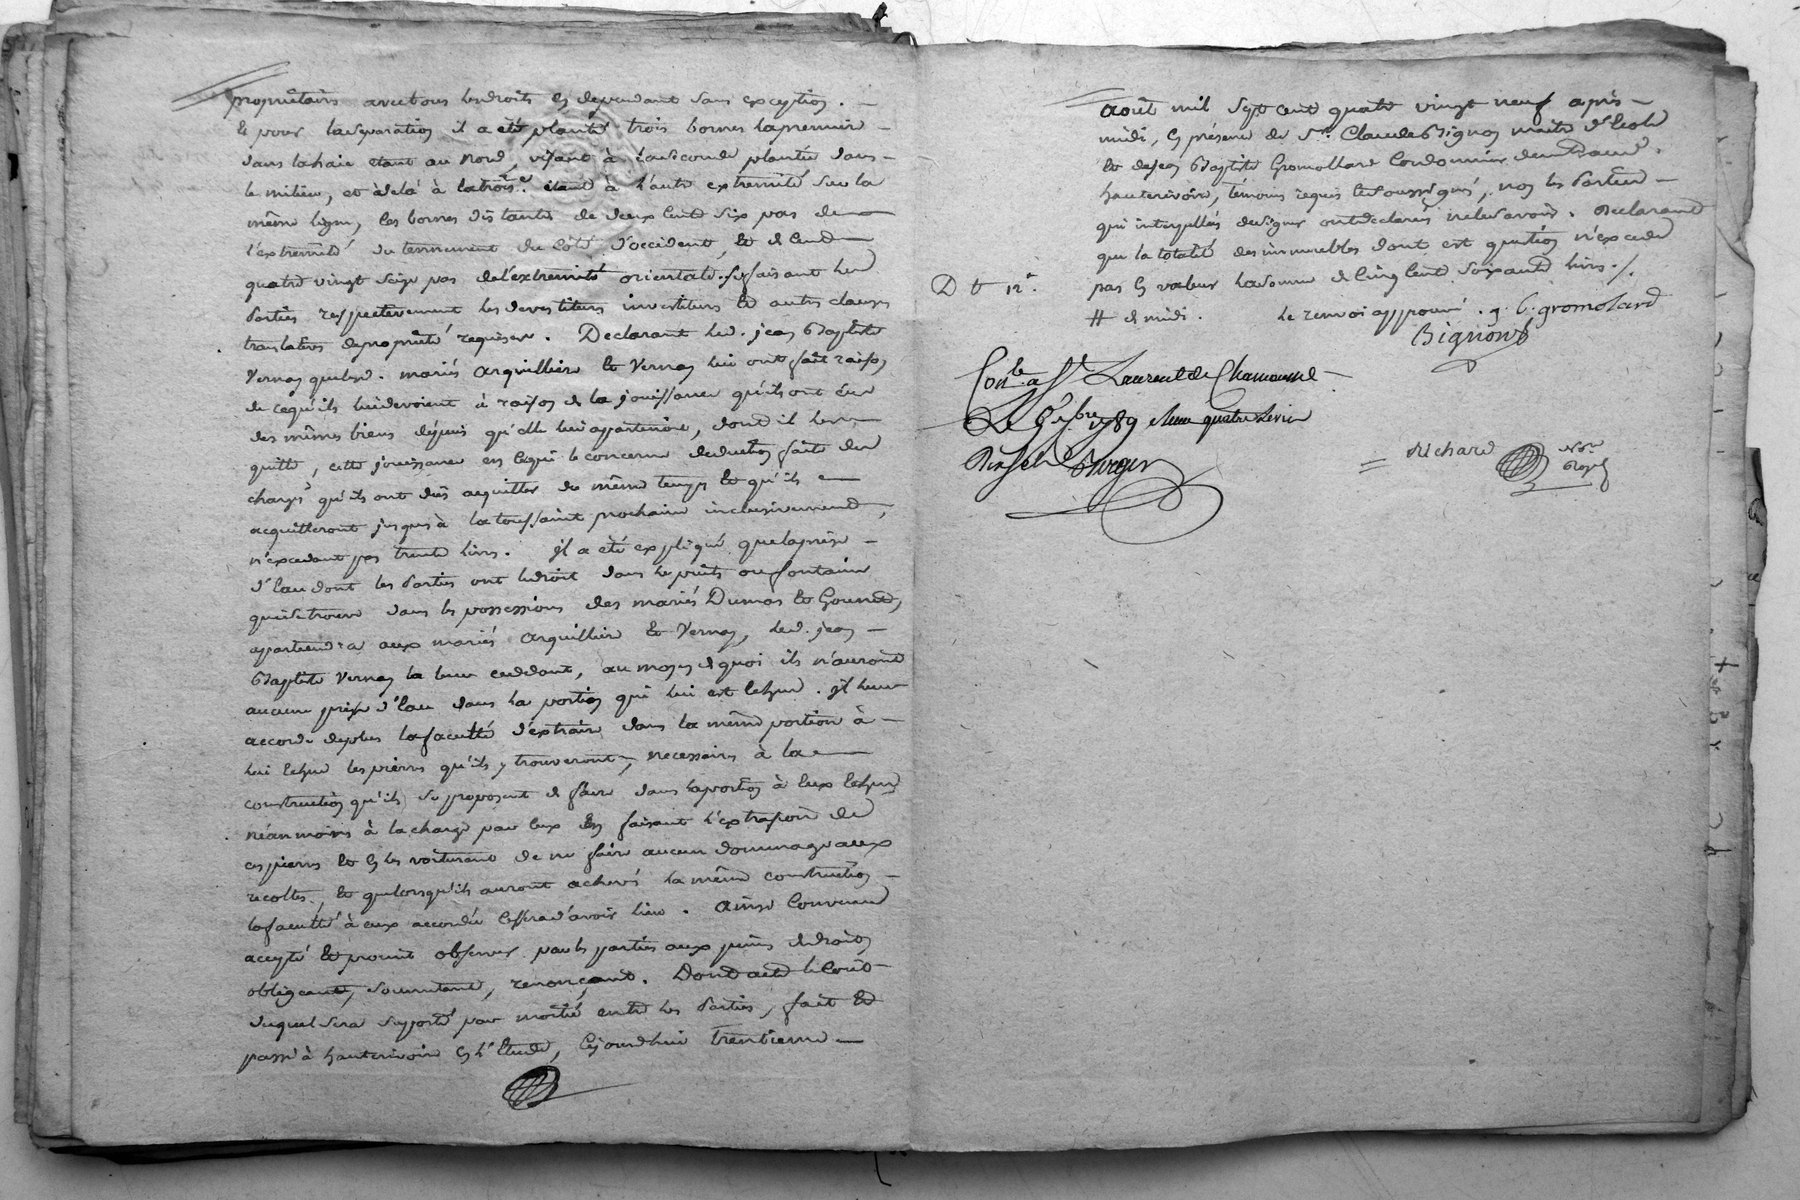 propriétaires avec tous les droits en dependant sans exception. —
Et pour la separation il a été planté trois bornes la premiere —
dans la haie etant au Nord, visant à la seconde plantée dans —
le milieu, et de là à la trois.e etant à l'autre extremité sur la
même ligne, les bornes distantes de deux cent six pas de —
l'extremité du tennement du côté d'occident, et de cent —
quatre vingt seize pas de l'extremité orientale. se faisant les d.
Parties respectivement les devestitures investitures et autres clauses
translatives de propriété requises. Declarant led. jean Baptiste
Vernay que lesd. mariés Arquilliere et Vernay lui ont fait raison
de ce qu'ils lui devoient à raison de la jouissance qu'ils ont eue
des mêmes biens depuis qu'elle lui appartenoit, dont il les
quitte, cette jouissance en ce qui le concerne deduction faite des
charges qu'ils ont dûs acquitter du même temps et qu'ils —
acquitteront jusques à la toussaint prochaine inclusivement,
n'excedant pas trente livres. il a été expliqué que la prise —
d'eau dont les Parties ont le droit dans le puits ou fontaine
qui se trouve dans les possessions des mariés Dumas et
appartiendra aux mariés Arquilliere et Vernay, led. jean —
Baptiste Vernay la leur cedant, au moyen de quoi ils n'auront
aucune prise d'eau dans la portion qui lui est echue. il leur
accorde de plus la faculté d'extraire dans la même portion à —
lui echue les pierres qu'ils y trouveront, necessaires à la —
construction qu'ils se proposent de faire dans la portion à eux echue
néanmoins à la charge par eux en faisant l'extraction de
ces pierres et en les voiturant de ne faire aucun dommage aux
recoltes, et que lorsqu'ils auront achevés la même construction —
la faculté à eux accordée cessera d'avoir lieu. Ainsi convenu
accepté et promit observer par les parties aux peines de droit,
obligeant, soumettant, renonçant. Dont acte le coût
duquel sera supporté par moitié entre les Parties, fait et
passé à hauterivoire en l'Etude, cejourdhui trentieme —
août mil sept cent quatre vingt neuf après —
midi, en présence de Sr. Claude Bignon maitre d'Ecole
et de jean Baptiste Gromollard Cordonnier demeurant
hauterivoire, témoins requis et soussignés, non les Parties —
qui interpellées de signer ont declarés ne le savoir. Declarant
que la totalité des immeubles dont est question n'excede
pas en valeur la somme de cinq cent soixante livres ./.
# de midi. Le renvoi approuvé. j. b. gromolard
Bignon
Con.lé a St Laurent de Chamousset
Le 8 7bre 1789
Richard No.re Royal